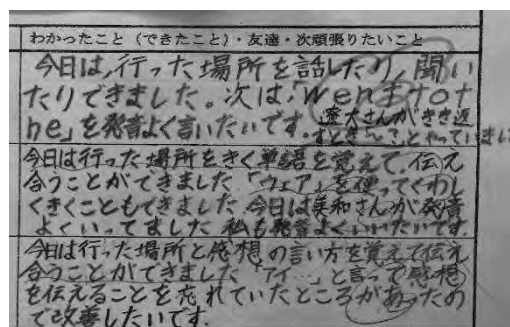 わかったこと（できたこと）・友達・次頑張りたいこと
今日は、行った場所を話したり、聞い
たりできました。次は、「wen to t
he」を発音よく言いたいです。
大さんがきき返
すとき
今日は行った場所をきく単語を覚えて、伝え
合うことができました「ウェア」を使ってくわし
くきくこともできました。今日は美和さんが発音
よくいってました私も発音よくいいたいです。
今日は行った場所と感想の言い方を覚えて伝え
合うことができました「アイ…」と言って感想
を伝えることを忘れていたところがあったの
で改善したいです。